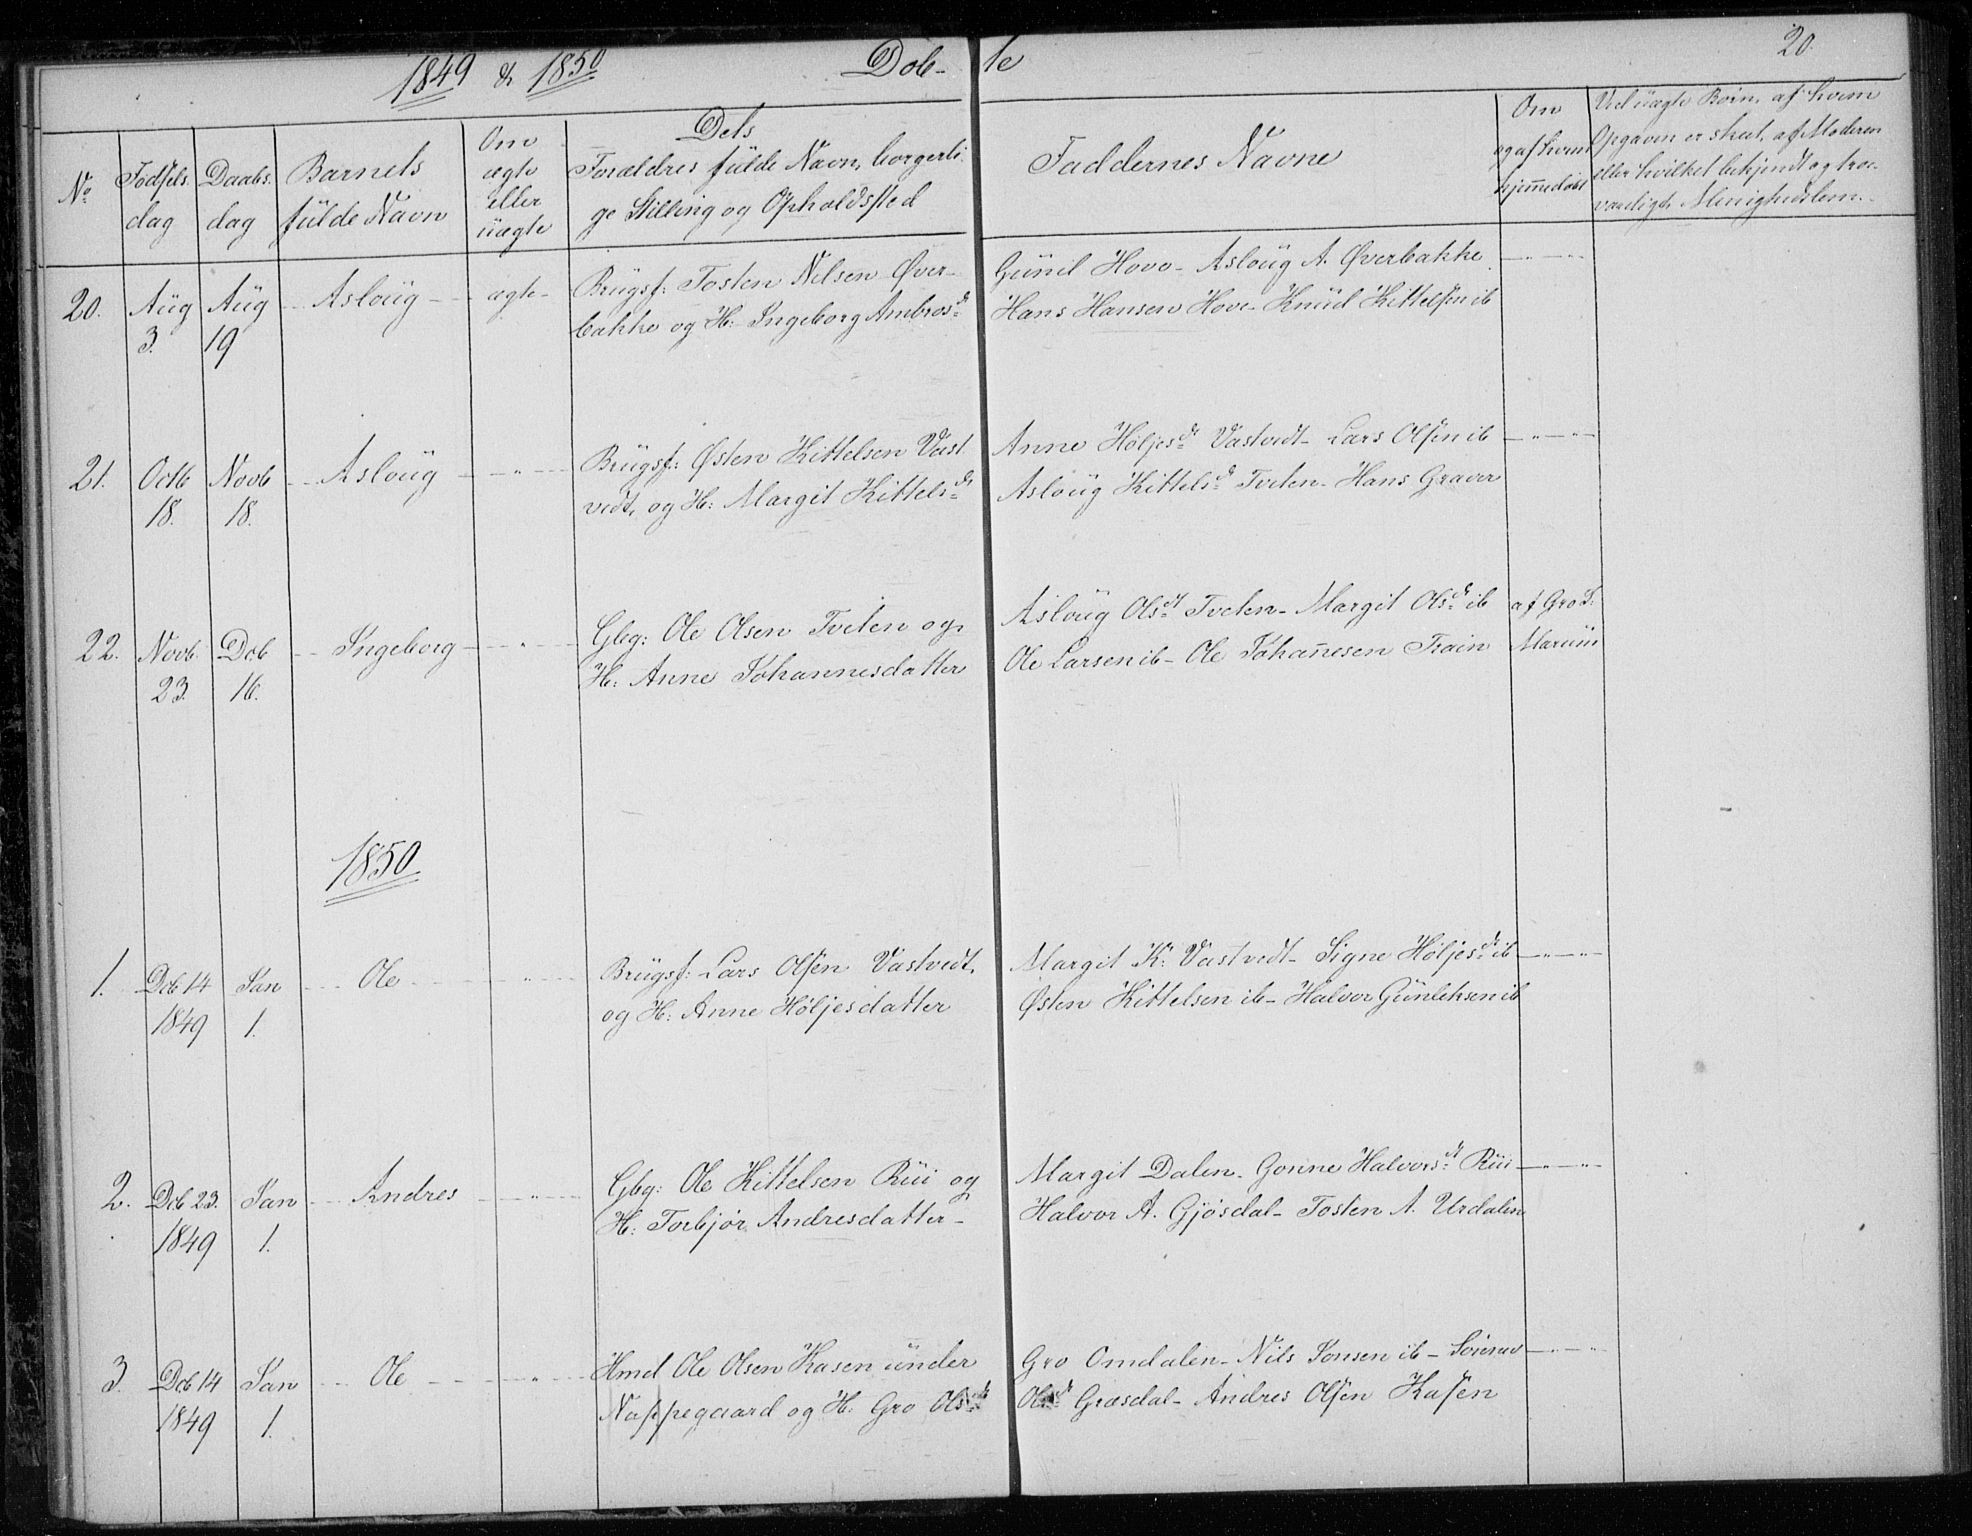 1849 & 1850 Døb- te 20.
No
Fødsels. dag
Daabs. dag
Barnets
fulde Navn
Om
ægte
eller
uægte
Dets
Forældres fulde Navn, borgerli-
ge Stilling og Opholdssted
Faddernes Navne
Om
og af hvem
hjemmedøbt
Ved uægte Børn, af hvem
Opgaven er skeet, af Moderen
eller hvilket bekjendt og tro-
værdigt Menighedslem.
20. Aug 3. Aug 19 Asloug ægte- Brugsf: Tosten Nilsen Øver-
bakke og H: Ingeborg Ambrosd.
Gunil Hovo- Asloug A. Øverbakke
Hans Hansen Hove- Knud Kittelsen ib
21. Octb 18. Novb 18. Asloug - " - Brugsf: Østen Kittelsen Vast
vedt, og H: Margit Kittelsdr
Anne Høljesdr Vastvedt- Lars Olsen ib - " -
Asloug Kittelsd. Tveten- Hans Graver
22. Novb. 23. Dcb 16. Ingeborg - " - Gbg: Ole Olsen Tveten og
H: Anne Johannesdatter
Asloug Olsdt Tveten- Margit Olsd. ib af Gro T:
Ole Larsen ib- Ole Johan̄esen Traen Marum
1850
1. Dcb 14 1849 Jan 1. Ole - " - Brugsf: Lars Olsen Vastvedt,
og H: Anne Høljesdatter
Margit K: Vastvedt- Signe Høljesdr ib - " -
Østen Kittelsen ib- Halvor Gunleksen ib
2. Dcb 23. 1849 Jan 1. Andres - " - Gbg: Ole Kittelsen Rui og
H: Torbjør Andresdatter-
Margit Dalen. Gonne Halvorsdt Rui - " -
Halvor A. Gjøsdal- Tosten A. Urdalen
3. Dcb 14 1849 Jan 1. Ole - " - Hmd Ole Olsen Kasen under
Nappegaard og H: Gro Olsdr
Gro Omdalen- Nils Jonsen ib- - " -
Olsd Græsdal- Andres Olsen Kasen